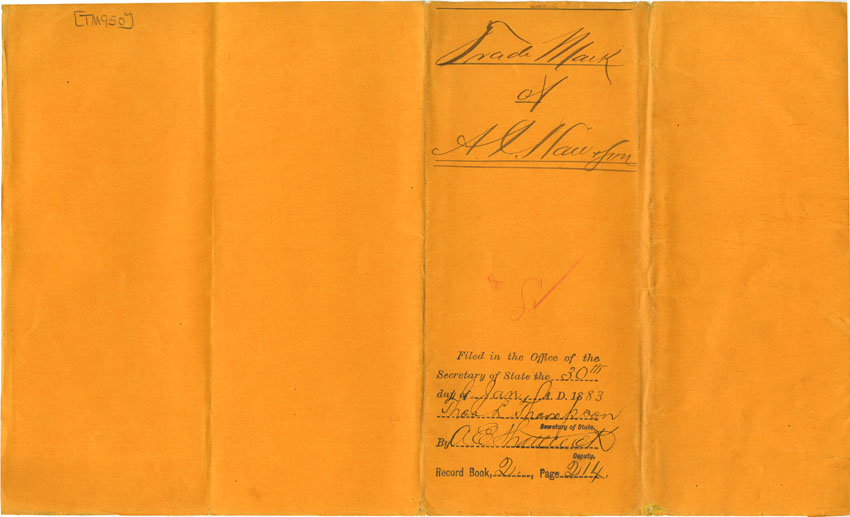 [TM950]
Trade Mark
of
A. & Son
Filed in the Office of the
Secretary of State the 30th
day of Jan. A. D. 1883
Thos L. Thompson
Secretary of State.
By A E Shattuck
Deputy.
Record Book, 2, Page 214.